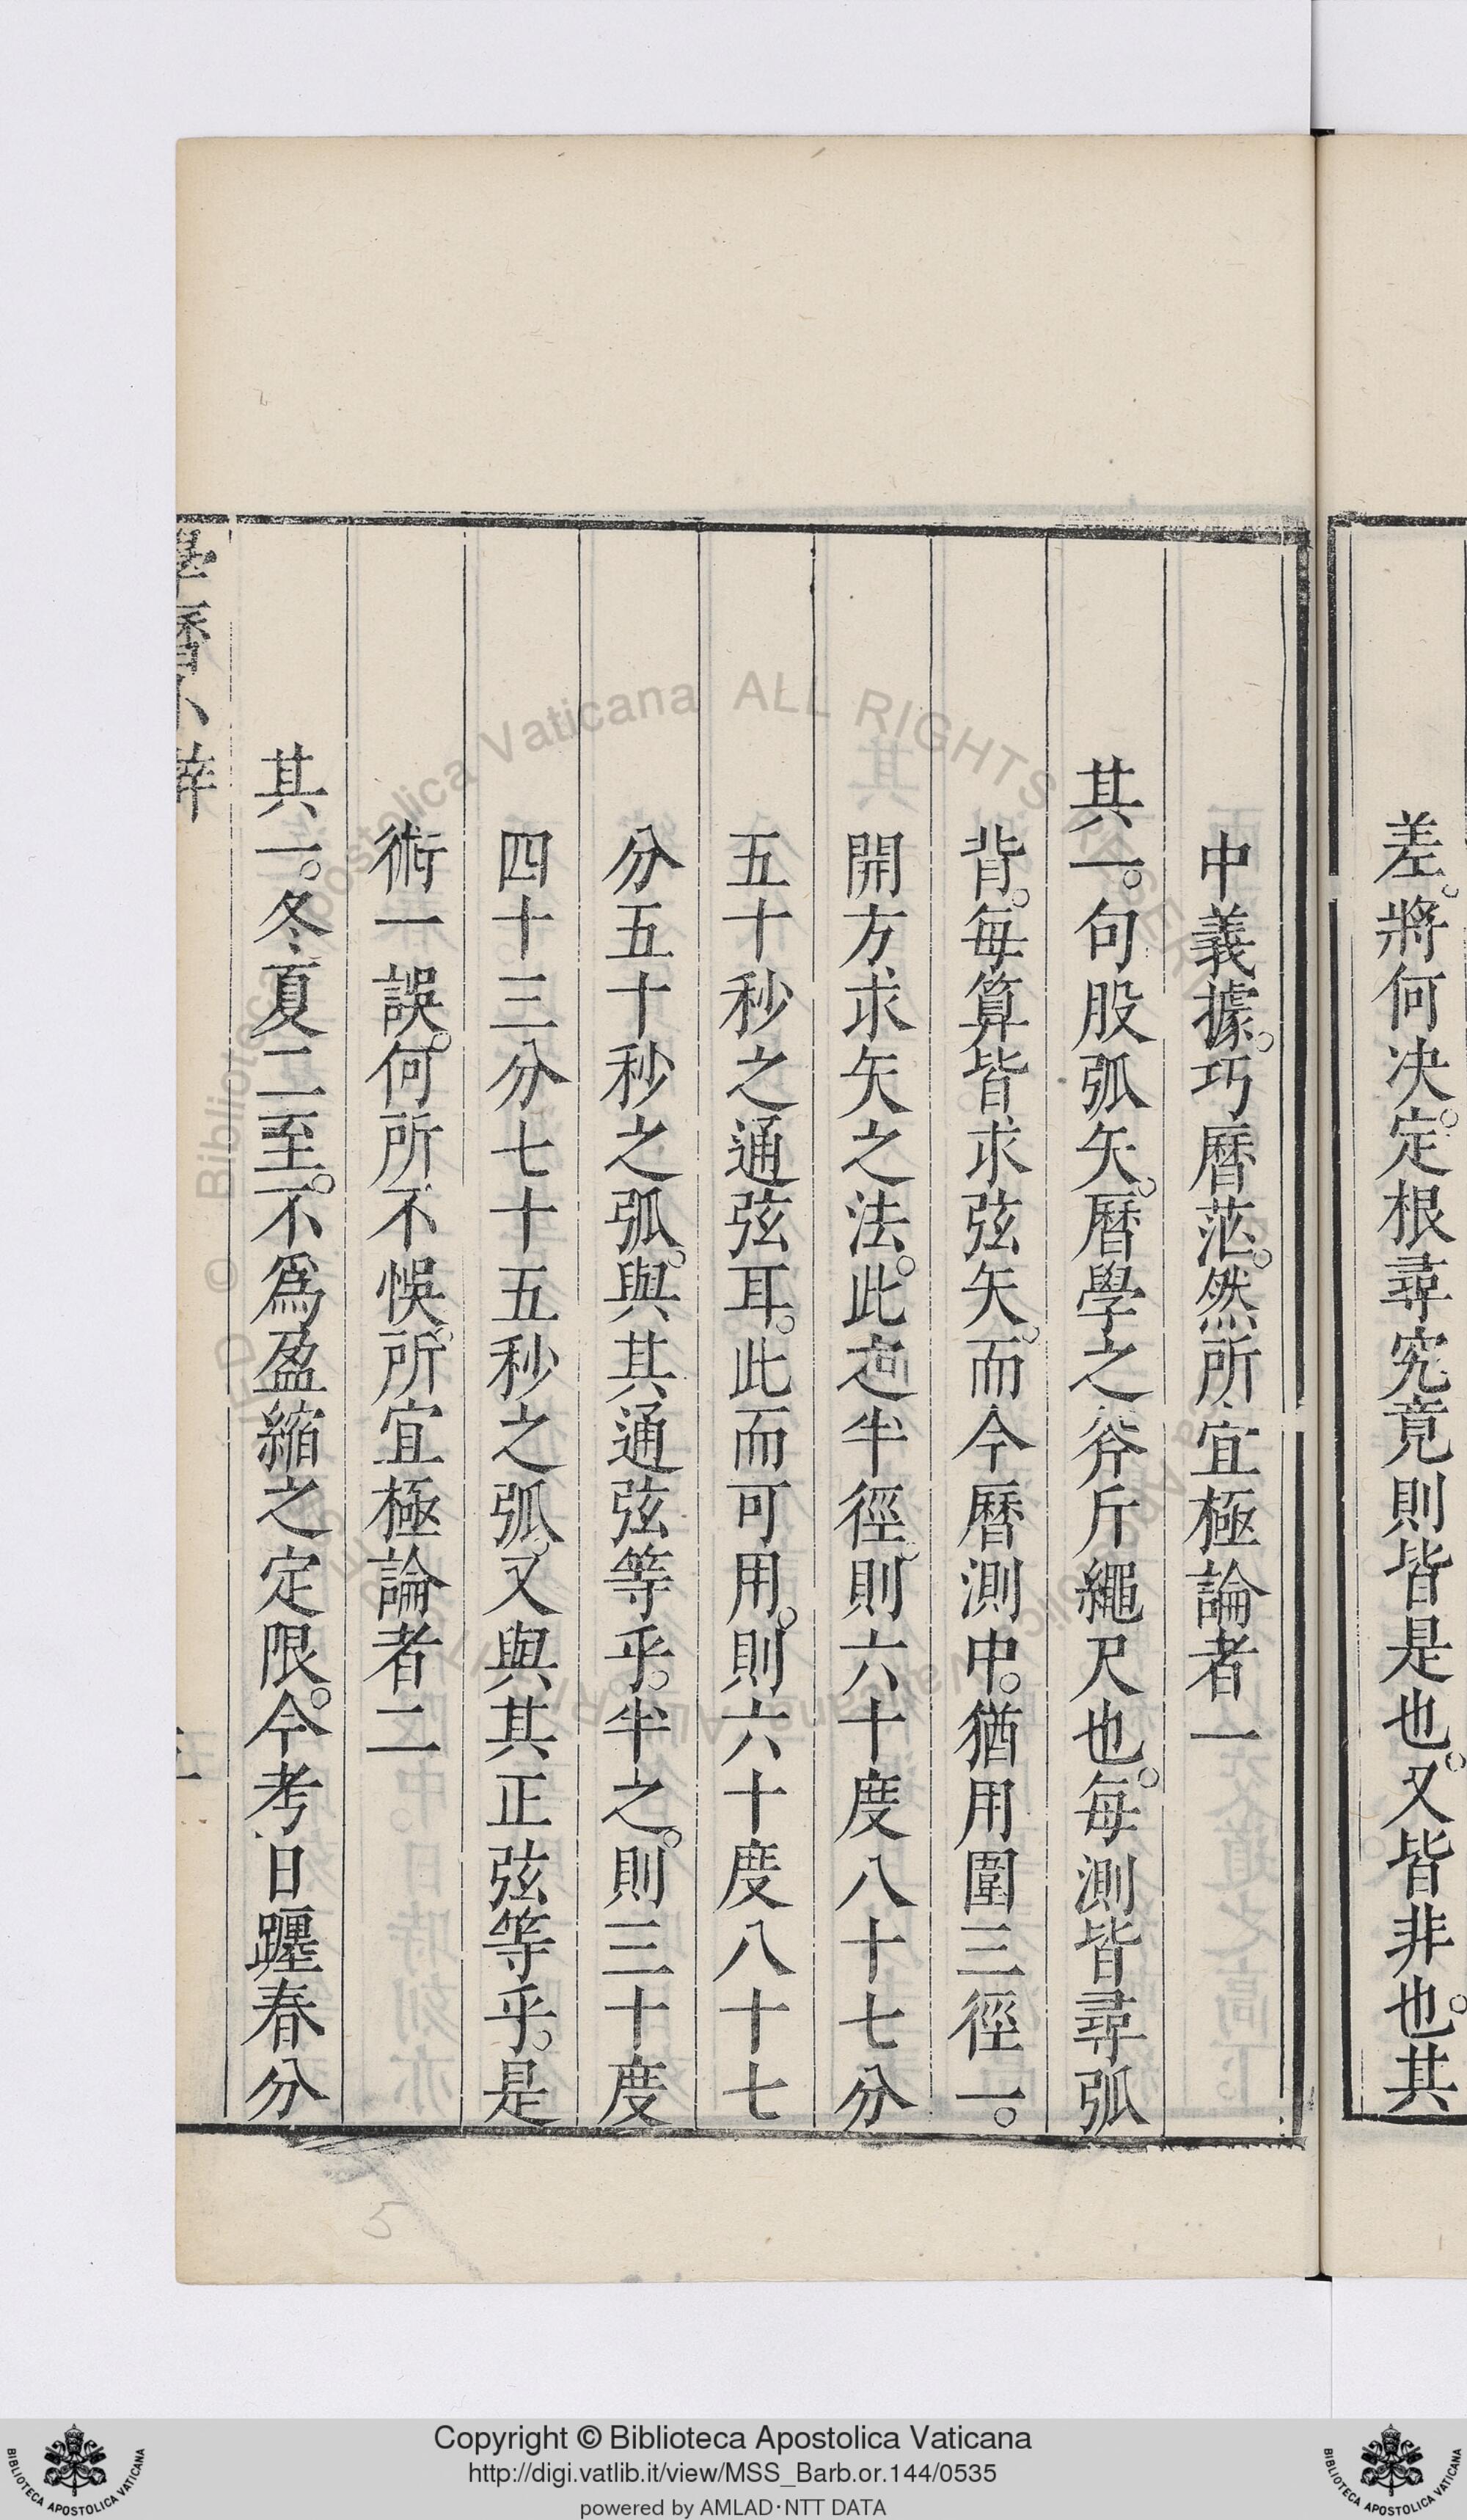 差。將何决。定根尋究竟則皆是也。又皆非也。其
中義據。巧曆茫。然所宜極論者一
其一。句股弧矢。曆學之斧斤繩尺也。每測皆尋弧
背。每算皆求弦矢。而今曆測中。猶用圍三徑一。
開方求矢之法。此造半徑。則六十度八十七分
五十秒之通弦耳。此而可用。則六十度八十七
分五十秒之弧。與其通弦等乎。半之。則三十度
四十三分七十五秒之弧。又與其正弦等乎。是
術一誤。何所不悞。所宜極論者二
其一。冬夏二至。不爲盈縮之定限。今考日躔春分
學曆小辯
Copyright © Biblioteca Apostolica Vaticana
http://digi.vatlib.it/view/MSS_Barb.or.144/0535
powered by AMLAD·NTT DATA
BIBLIOTECA APOSTOLICA VATICANA
BIBLIOTECA APOSTOLICA VATICANA